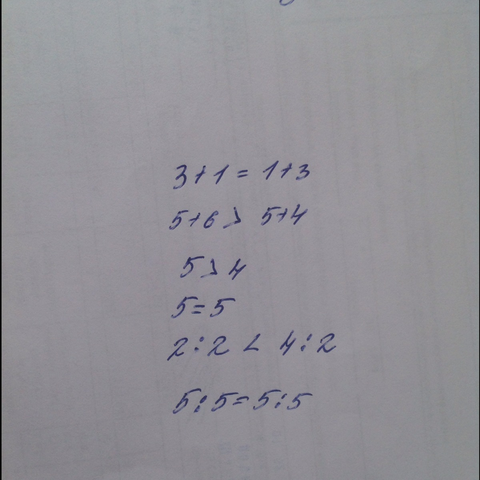 3+1=1+3
5+6>5+4
5>4
5=5
2:2<4:2
5:5=5:5